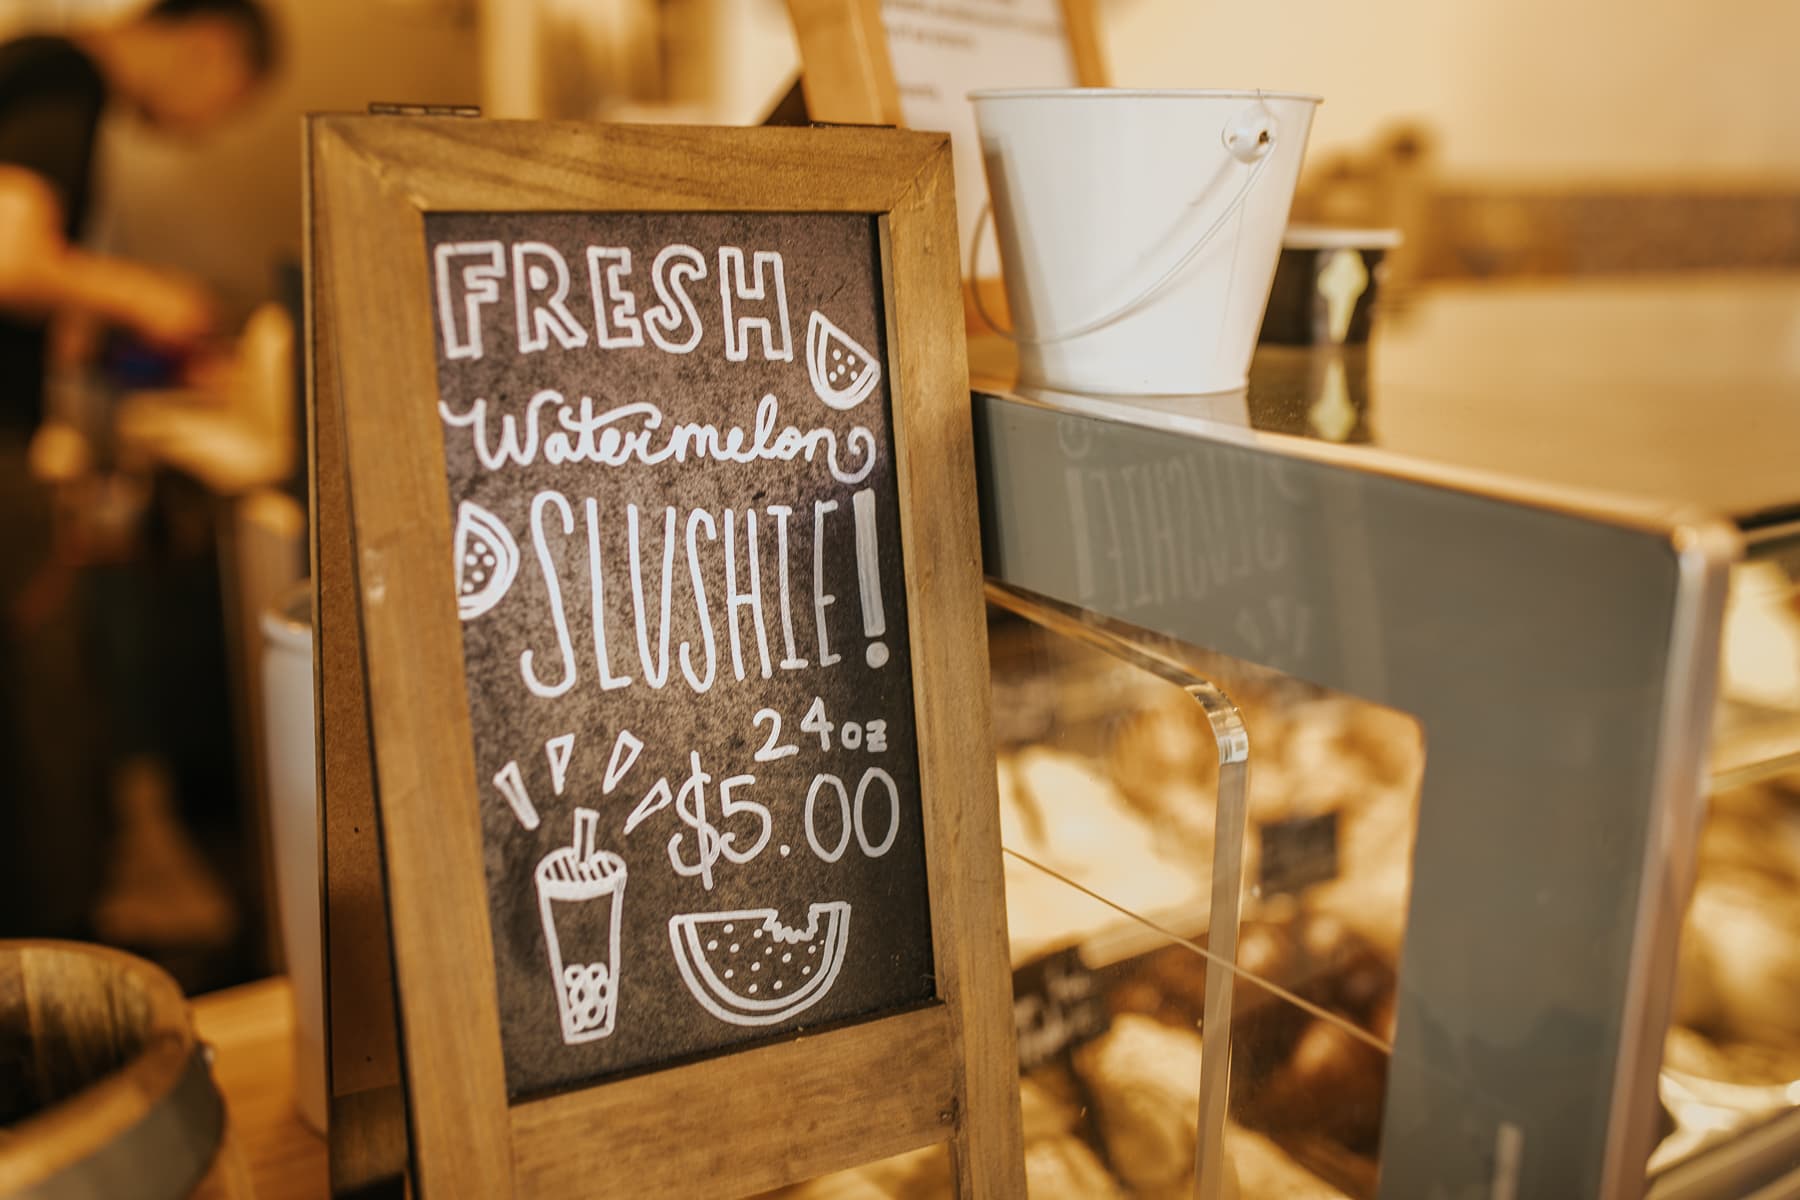 FRESH
Watermelon
SLUSHIE!
24oz
$5.00